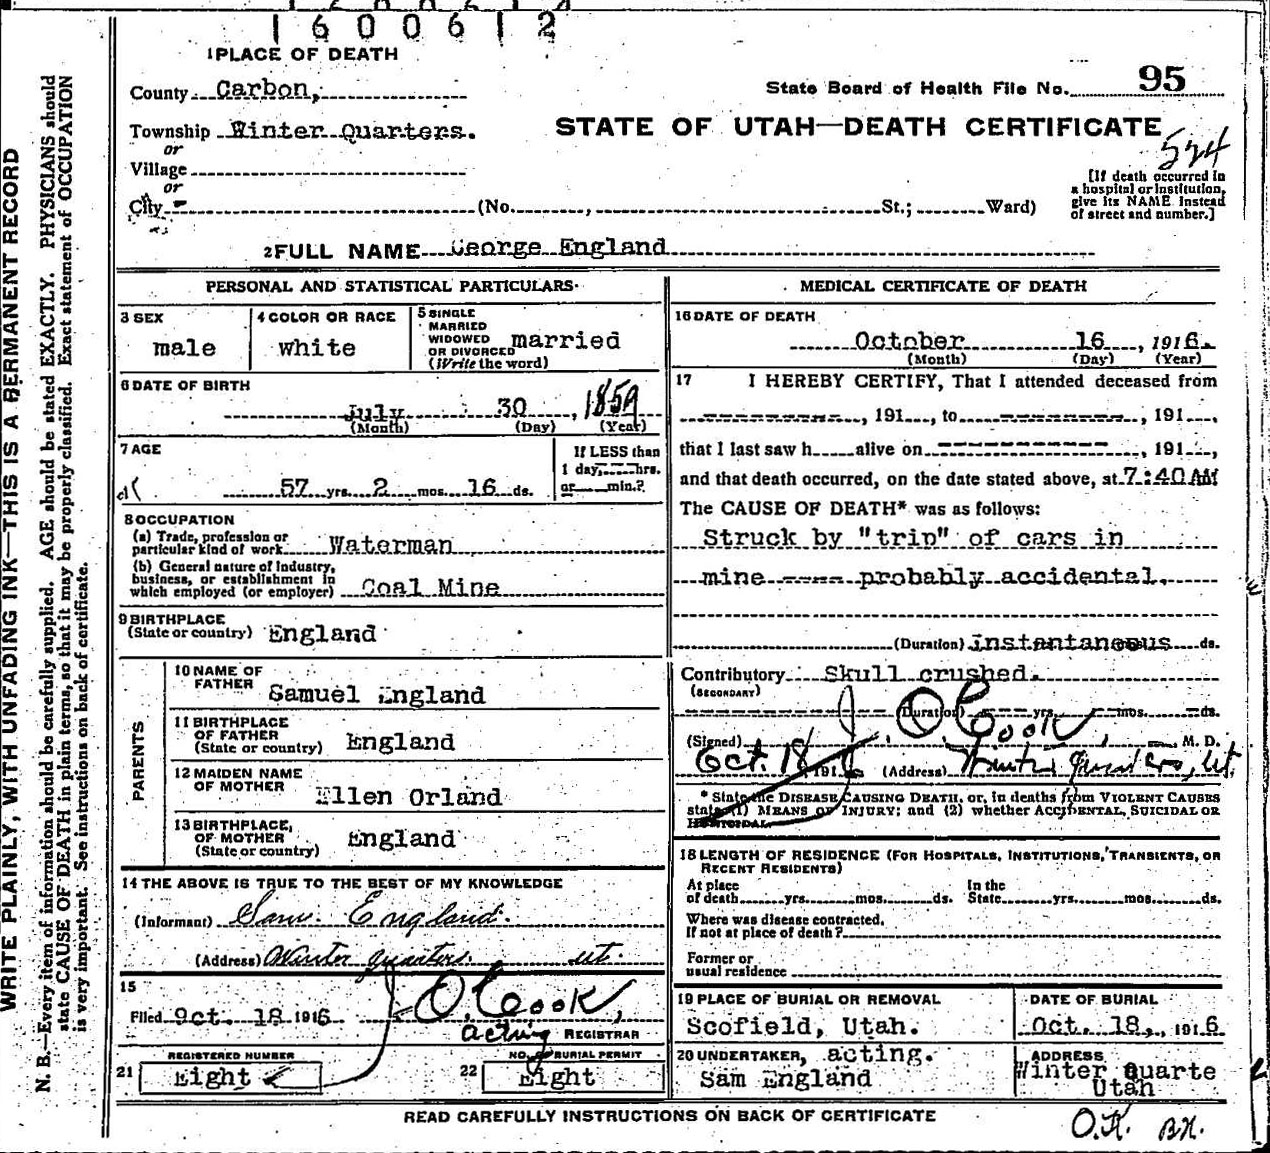 1600612
1 PLACE OF DEATH
County Carbon,
State Board of Health File No. 95
Township Winter Quarters.
STATE OF UTAH—DEATH CERTIFICATE
524
or
Village
or
City - (No. , St.; Ward)
[If death occurred in
a hospital or institution,
give its NAME instead
of street and number.]
2 FULL NAME George England
PERSONAL AND STATISTICAL PARTICULARS
3 SEX
male
4 COLOR OR RACE
white
5 SINGLE
MARRIED
WIDOWED
OR DIVORCED
(Write the word)
married
6 DATE OF BIRTH
July 30, 1859
(Month) (Day) (Year)
7 AGE
57 yrs. 2 mos. 16 ds.
If LESS than
1 day, hrs.
or min.?
8 OCCUPATION
(a) Trade, profession or
particular kind of work Waterman
(b) General nature of Industry,
business, or establishment in
which employed (or employer) Coal Mine
9 BIRTHPLACE
(State or country) England
PARENTS
10 NAME OF
FATHER Samuel England
11 BIRTHPLACE
OF FATHER
(State or country) England
12 MAIDEN NAME
OF MOTHER Ellen Orland
13 BIRTHPLACE,
OF MOTHER
(State or country) England
14 THE ABOVE IS TRUE TO THE BEST OF MY KNOWLEDGE
(Informant) Sam. England.
(Address) Winter quarters. ut.
15
Filed Oct. 18 1916 J. O. Cook,
acting REGISTRAR
REGISTERED NUMBER
21 Eight
NO. OF BURIAL PERMIT
22 Eight
MEDICAL CERTIFICATE OF DEATH
16 DATE OF DEATH
October 16, 1916.
(Month) (Day) (Year)
17 I HEREBY CERTIFY, That I attended deceased from
---------- , 191 , to ---------- , 191 ,
that I last saw h alive on ------------- , 191 ,
and that death occurred, on the date stated above, at 7:40AM
The CAUSE OF DEATH* was as follows:
Struck by "trip" of cars in
mine ---- probably accidental.
(Duration) instantaneous ds.
Contributory Skull crushed.
(SECONDARY)
(Duration) yrs. mos. ds.
(Signed) J. O. Cook, M. D.
Oct. 18 1916 (Address) Winter Quarters, Ut.
* State the DISEASE CAUSING DEATH, or, in deaths from VIOLENT CAUSES
state (1) MEANS OF INJURY; and (2) whether ACCIDENTAL, SUICIDAL OR
HOMICIDAL.
18 LENGTH OF RESIDENCE (FOR HOSPITALS, INSTITUTIONS, TRANSIENTS, OR
RECENT RESIDENTS)
At place
of death yrs. mos. ds.
In the
State yrs. mos. ds.
Where was disease contracted,
If not at place of death?
Former or
usual residence
19 PLACE OF BURIAL OR REMOVAL
Scofield, Utah.
DATE OF BURIAL
Oct. 18, 1916
20 UNDERTAKER, acting.
Sam England
ADDRESS
Winter Quarte
Utah
READ CAREFULLY INSTRUCTIONS ON BACK OF CERTIFICATE
O.K. BN.
WRITE PLAINLY, WITH UNFADING INK—THIS IS A PERMANENT RECORD
N. B.—Every item of information should be carefully supplied. AGE should be stated EXACTLY. PHYSICIANS should
state CAUSE OF DEATH in plain terms, so that it may be properly classified. Exact statement of OCCUPATION
is very important. See instructions on back of certificate.